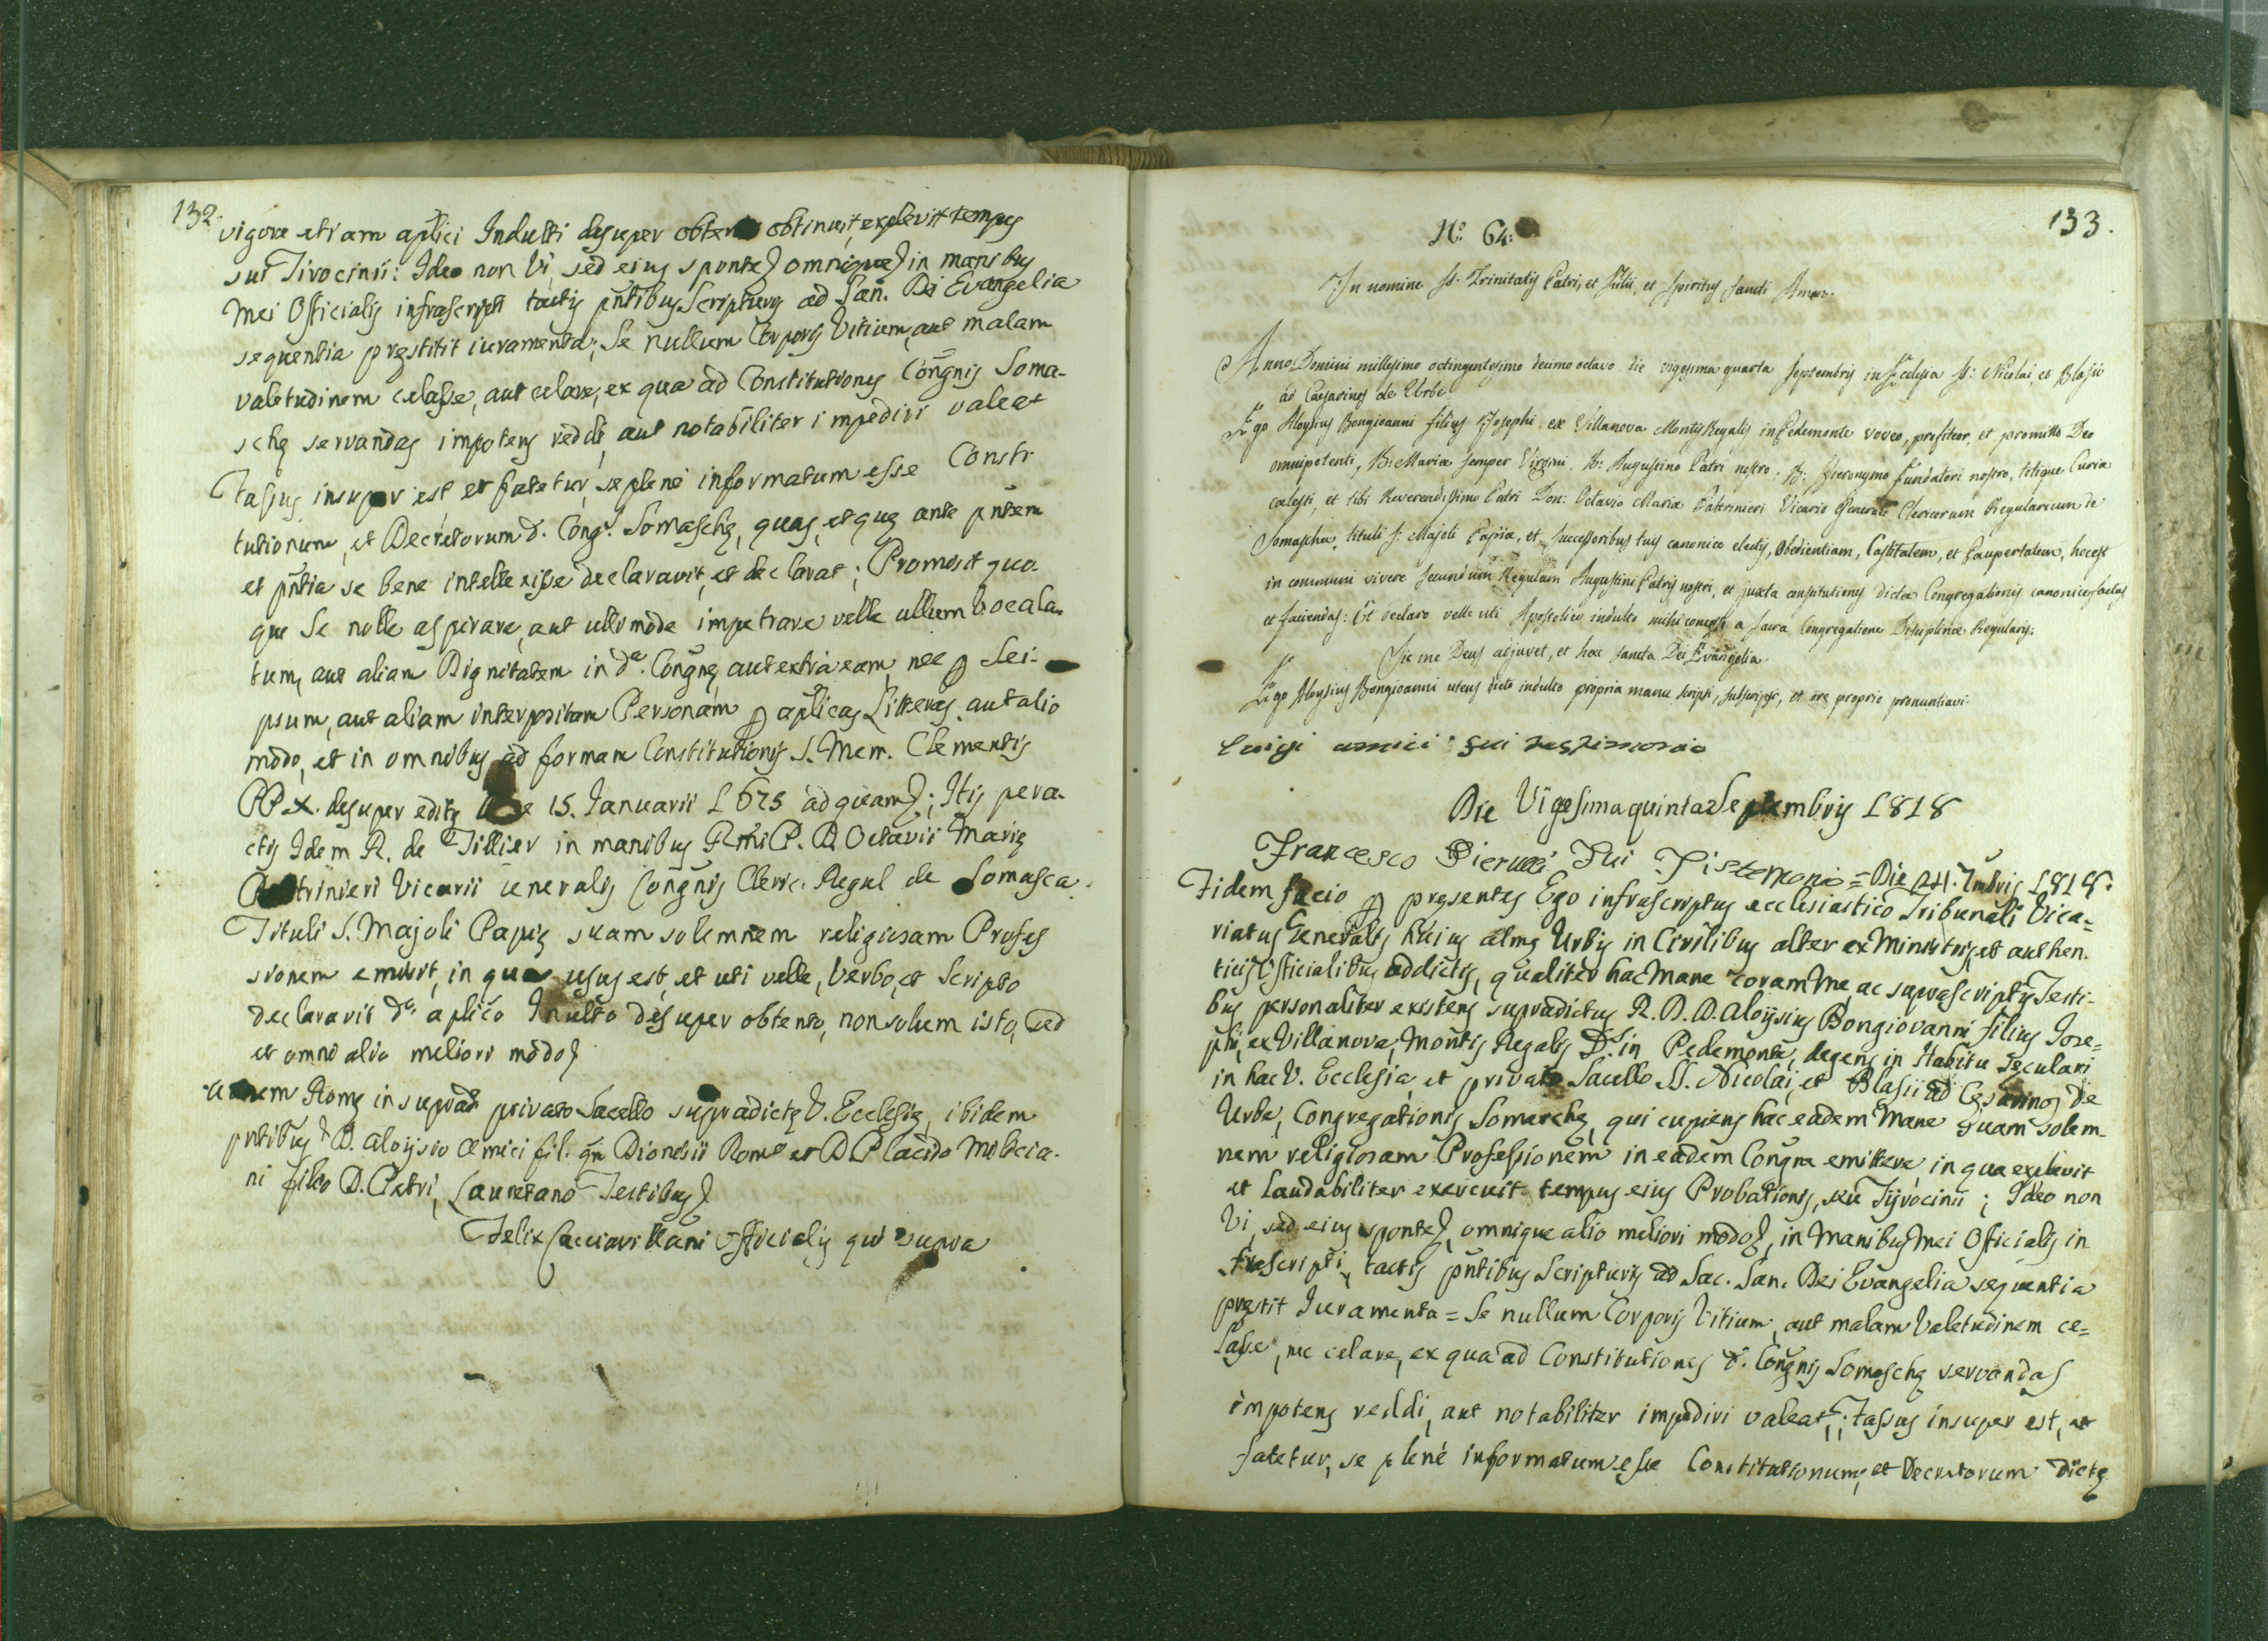 132.
vigore etiam aplici Indulti desuper obten obtinuit, explevit tempus
sui Tirocinii: Ideo non Vi, sed eius sponte omnique in manibus
Mei Officialis infrascripti tactis pntibus Scripturis ad San. Dei Evangelia
sequentia prestitit iuramenta; Se nullum Corporis Vitium, aut malam
valetudinem celasse, aut celare, ex qua ad Constitutiones Congnis Soma-
schę servandas impotens reddi, aut notabiliter impediri valeat
Tassus insuper est et fatetur, se plenè informatum esse Consti-
tutionum, et Decretorum d. Cong. Somaschę, quas, et quę ante pntem
et pntia se bene intellexisse declaravit, et declarat; Promisit quo-
que Se nolle aspirare, aut ullo modo impetrare velle ullum Vocala-
tum, aut aliam Dignitatem in da. Congne, aut extra eam, nec p Sei-
psum, aut aliam interpositam Personam p aplicas Litteras, aut alio
modo, et in omnibus ad formam Constitutionis S. Mem. Clementis
PP. X. desuper editę 15. Januarii 1675 ad quam; Itis pera-
ctis Idem R. de Tillier in manibus Rmi P. D. Octavii Marię
Paltrinieri Vicarii Generalis Congnis Cleric. Regul de Somasca.
Tituli S. Majoli Papię suam solemnem religiosam Profes
sionem emisit, in qua usus est, et uti velle, Verbo, et Scripto
declaravit do. aplico Indulto desuper obtento, non solum isto, sed
et omni alio meliori modo
Romę in suprad. privato Sacello supradictę V. Ecclesię, ibidem
pntibus D. Aloysio Amici fil. qm Dionisii Romo et D Placido Milocia-
ni filio D. Petri, Lauretano Testibus
Felix Cacciavillani Officialis qui supra
133.
No. 64:
In nomine SS. Trinitatis Patris, et Filii, et Spiritus Sancti Amen.
Anno Domini millesimo octingentesimo decimo octavo die vigesima quarta Septembris in Ecclesia SS: Nicolai, et Blasii
ad Caesarinos de Urbe.
Ego Aloysius Bongioanni filius Josephi ex Villanova Montis Regalis in Pedemonte voveo, profiteor, et promitto Deo
omnipotenti, B. Mariæ semper Virgini, B: Augustino Patri nostro, B: Hieronymo Fundatori nostro, totique Curiæ
cælesti, et tibi Reverendissimo Patri Don: Octavio Mariæ Paltrinieri Vicario Generali Clericorum Regularium de
Somascha, tituli S: Majoli Papiæ, et successoribus tuis canonice electis, Obedientiam, Castitatem, et Paupertatem, hoc est
in communi vivere secundum Regulam Augustini Patris nostri, et juxta constitutiones dictæ Congregationis canonice factas
et faciendas: Et declaro velle uti Apostolico indulto mihi concesso a Sacra Congregatione Disciplinæ Regularis.
Sic me Deus adjuvet, et hæc Sancta Dei Evangelia.
Ego Aloysius Bongioanni utens dicto indulto propria manu scripsi, subscripsi, et ore proprio pronuntiavi.
Luigi amici fui testimonio
Die Vigesima quinta Septembris 1818
Francesco Pierucci Fui Tistemonio = Die 24. 7mbris 1818.
Fidem facio p presentes Ego infrascriptus ecclesiastico Tribunali Vica-
riatus Generalis huius almę Urbis in Civilibus alter ex Ministris, et authen-
ticis Officialibus addictis, qualiter hac Mane coram Me, ac suprascriptis Testi-
bus personaliter existens supradictus R. D. D. Aloijsius Bongiovanni filius Jose=
phi, ex Villanova, Montis Regalis Ds. in Pedemonte, degens in Habitu Seculari
in hac V. Ecclesia, et privato Sacello SS. Nicolai, et Blasii ad Cęsarinos de
Urbe, Congregationis Somaschę, qui cupiens hac eadem Mane suam solem-
nem religiosam Professionem in eadem Congne emittere in qua explevit
et laudabiliter exercuit tempus eius Probationis, seu Tijrocinii; Ideo non
Vi, sed eius sponte, omnique alio meliori modo, in Manibus Mei Officialis in
frascripti, tactis pntibus Scripturis ad Sac. San. Dei Evangelia sequentia
prestit Iuramenta = Se nullum Corporis Vitium, aut malam Valetudinem ce=
lasse, nec celare, ex qua ad Constitutiones d. Congnis Somaschę servandas
impotens reddi, aut notabiliter impediri valeat; Tassus insuper est, et
fatetur, se plenè informatum esse Constitutionum, et Decretorum dictę